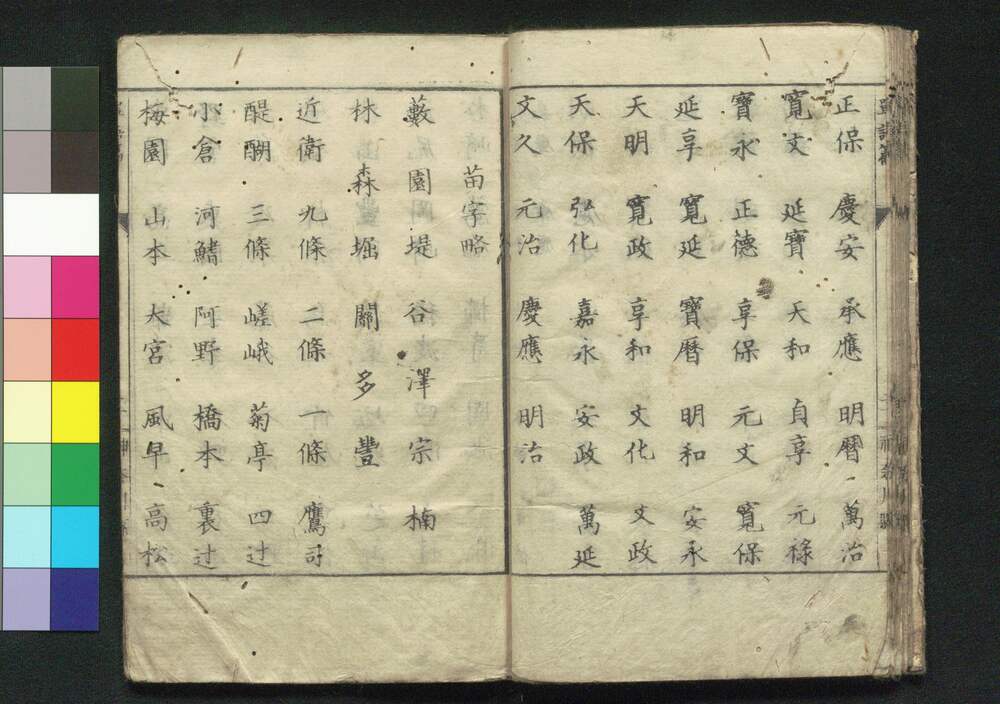 正保 慶安 承應 明曆 萬治
寬文 延寶 天和 貞享 元祿
寶永 正德 享保 元文 寬保
延享 寬延 寶曆 明和 安永
天明 寬政 享和 文化 文政
天保 弘化 嘉永 安政 萬延
文久 元治 慶應 明治
苗字略
藪 園 堤 谷 澤 宗 楠
林 森 堀 關 多 豐
近衛 九條 二條 一條 鷹司
醍醐 三條 嵯峨 菊亭 四辻
小倉 河鰭 阿野 橋本 裏辻
梅園 山本 大宮 風早 高松